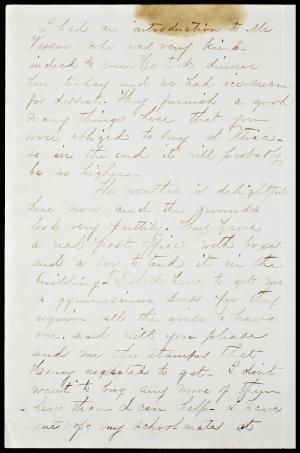 I had an introduction to Mr
Vassar who was very kind
indeed to me. He took dinner
here to-day and we had ice-cream
for dessert. They furnish a good
many things here that you
were obliged to buy at Utica-
so in the end it will probably
be no higher.
The weather is delightful
here now and the grounds
look very prettily. They have
a real post office with boxes
and a boy to tend it in the
building. I shall have to get me
a gymnasium dress for they
require all the girls to have
one. and will you please
send me the stamps that
Henry neglected to get. I don't
want to buy any more of them
here than I can help. I have
one of my schoolmates at